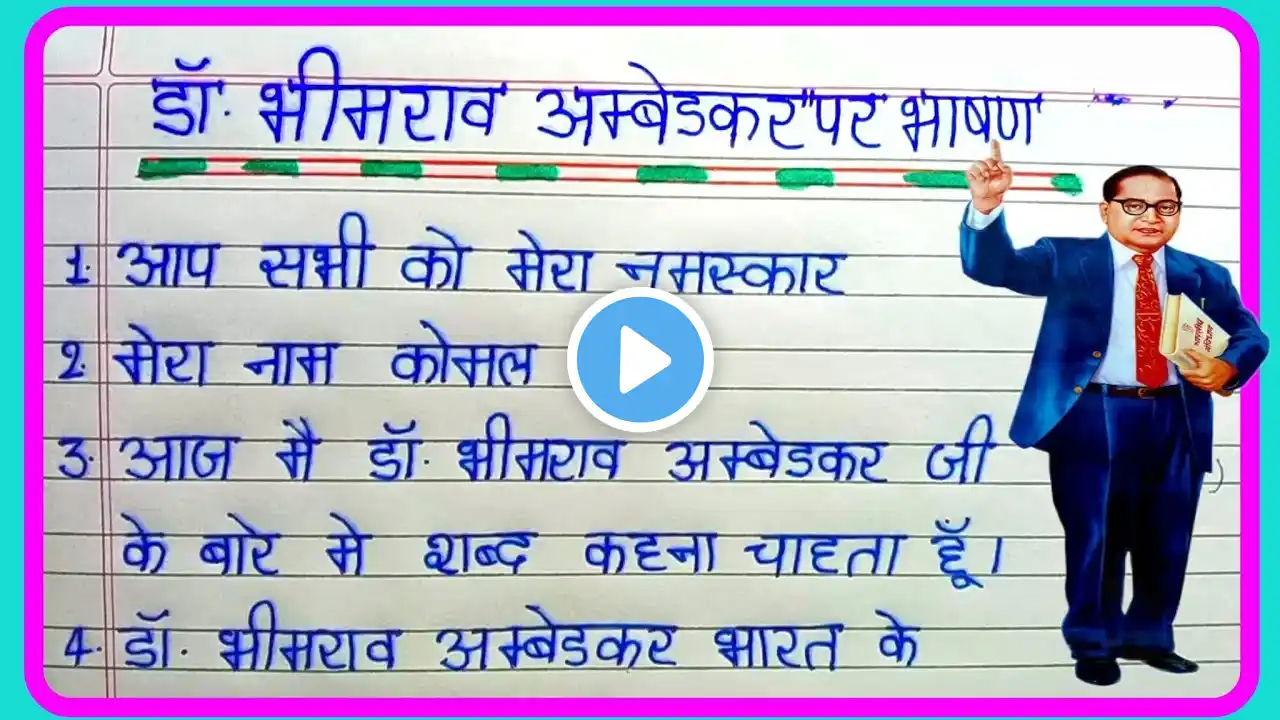 डॉ. भीमराव अम्बेडकर"पर भाषण
1. आप सभी को मेरा नमस्कार
2. मेरा नाम कोमल
3. आज मै डॉ. भीमराव अम्बेडकर जी
के बारे मे शब्द कहना चाहता हूँ।
4. डॉ. भीमराव अम्बेडकर भारत के
भारतीय
संविधान